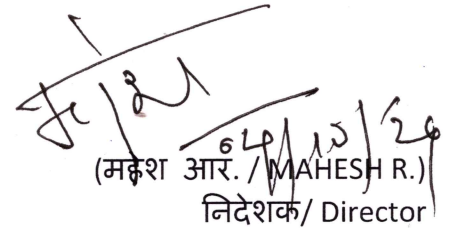 महेश
(महेश आर. / MAHESH R.)
निदेशक/ Director